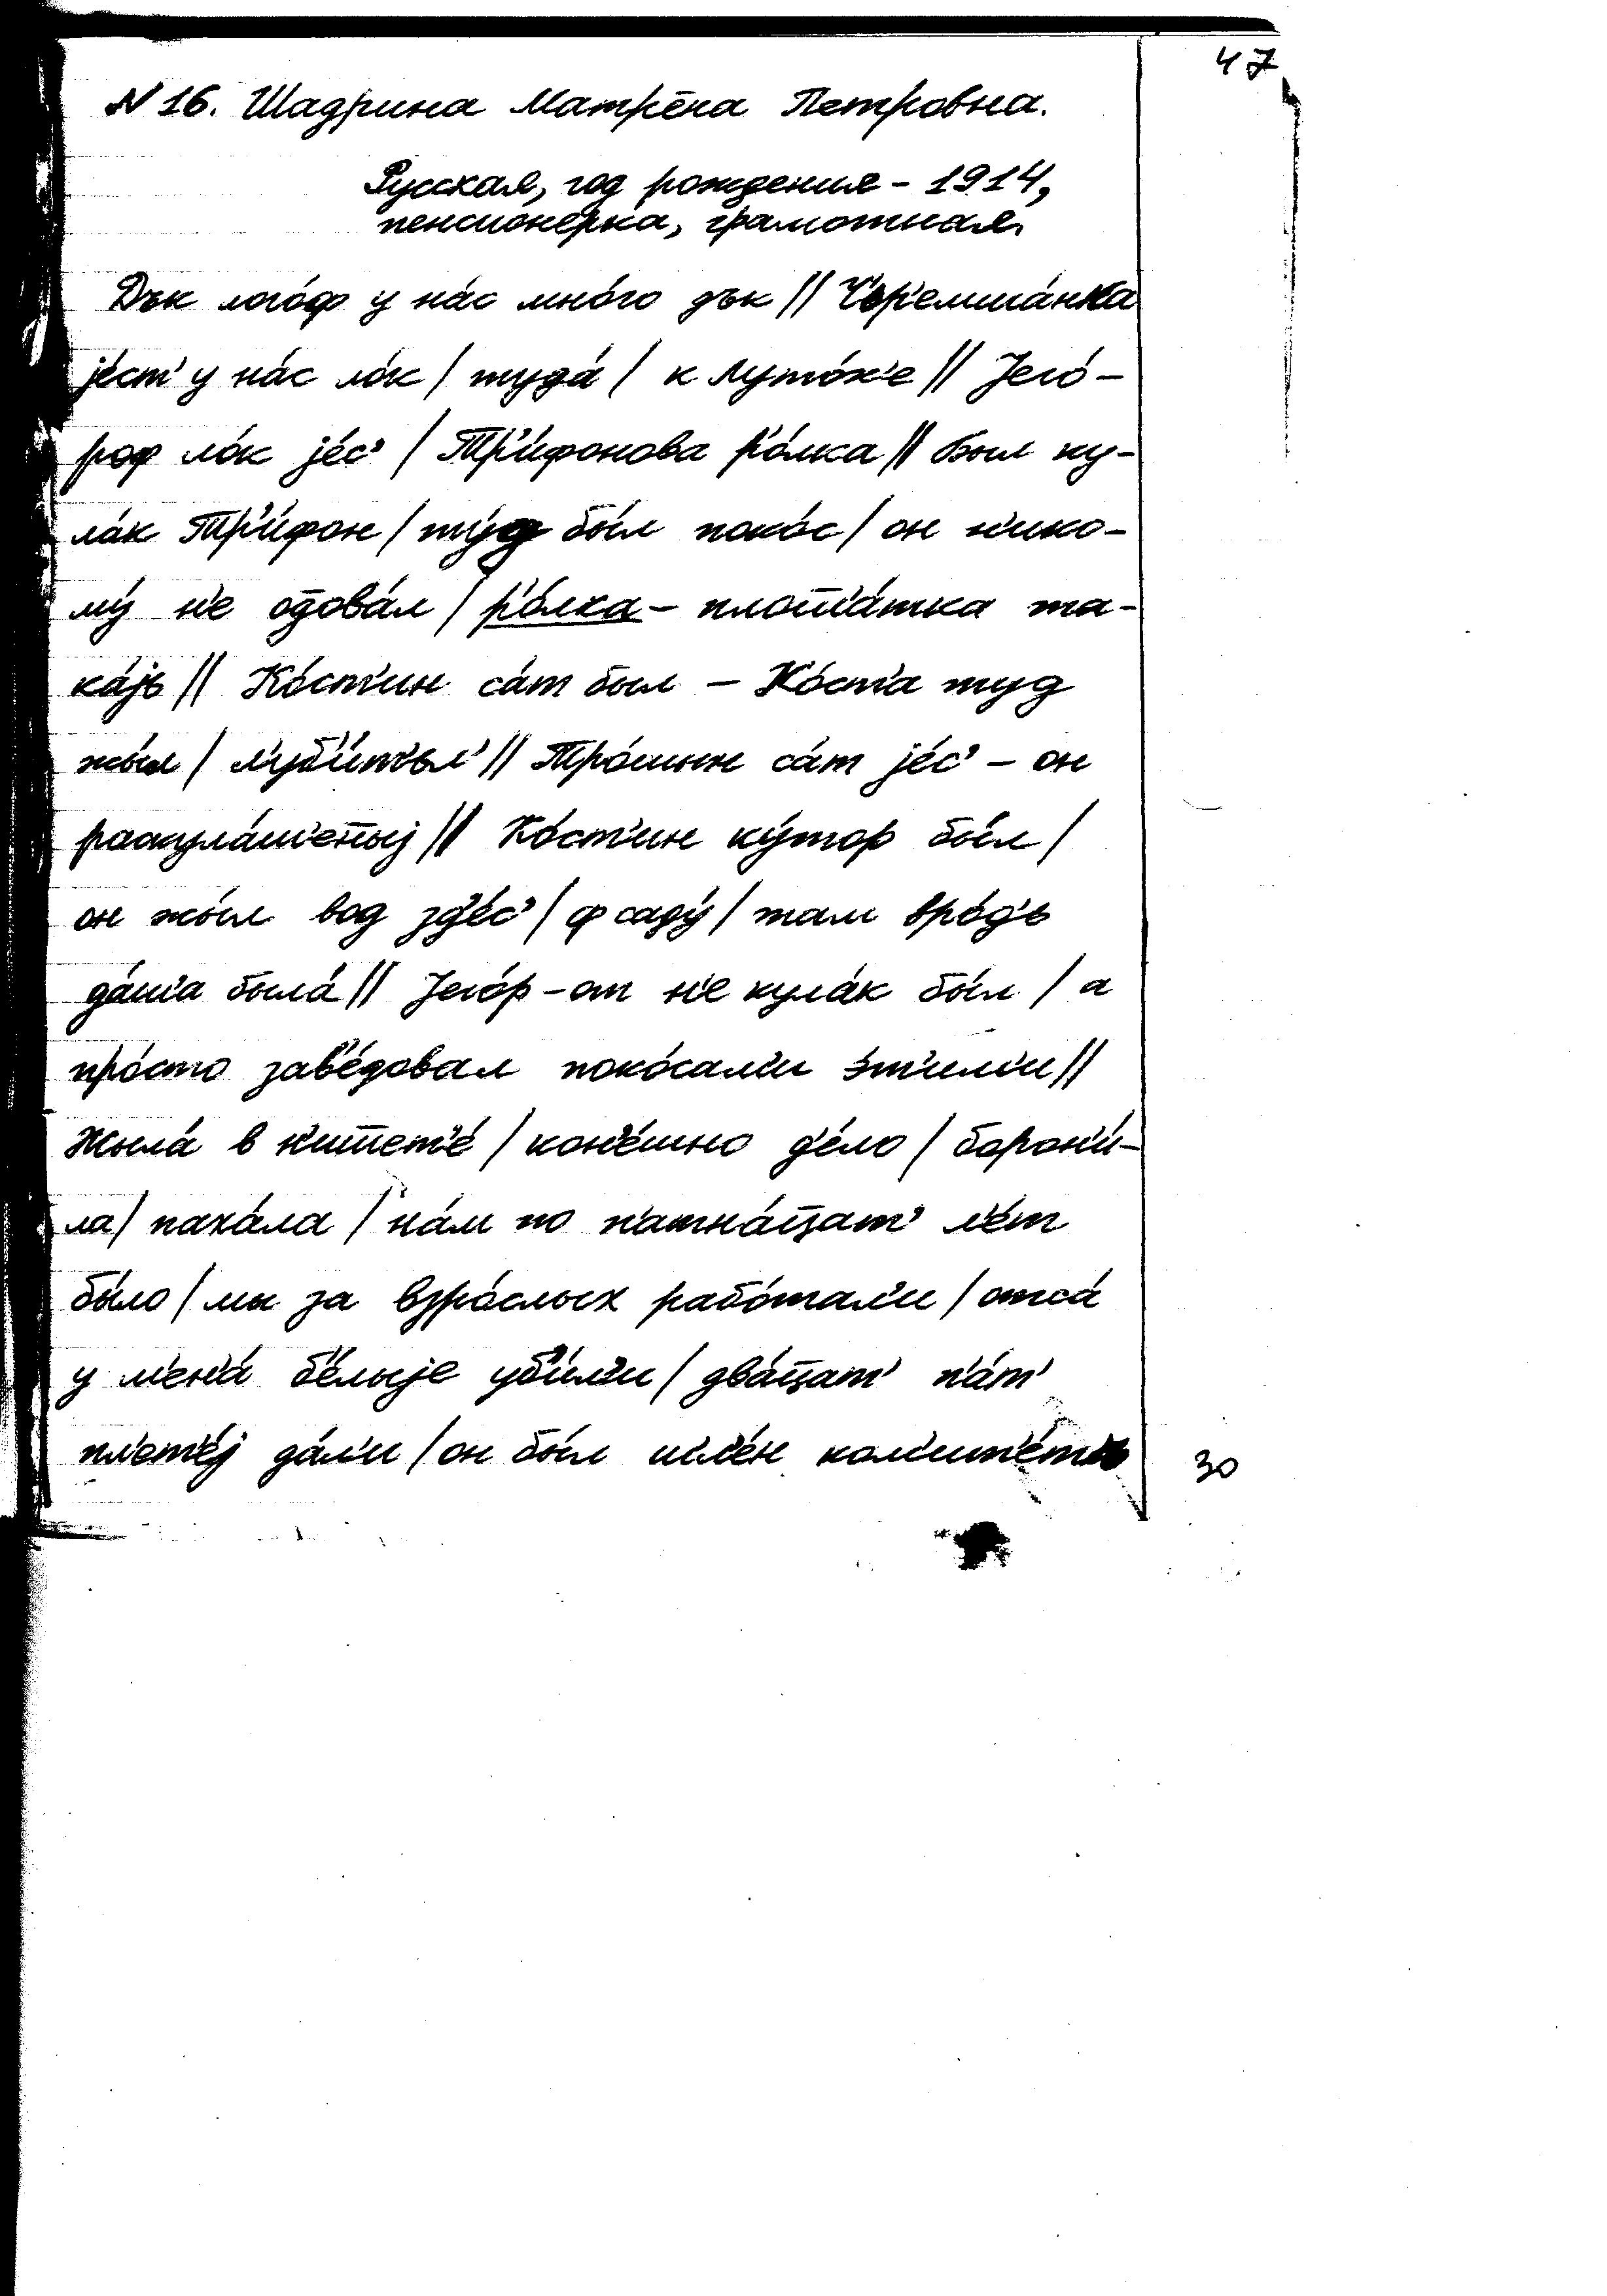 47
N 16. Шадрина Матрёна Петровна.
Русская, год рождения – 1914,
пенсионерка, грамотная.
Дък лого́ф у на́с мно́го дък // Ч'ер'емша́нка
је́ст' у на́с ло́к / туда́ / к Луто́х'е // Јего́-
роф ло́к је́с' / Тр'и́фонова р'о́лка // Был ку-
ла́к Тр'и́фон / ту́д бы́л поко́с / он н'ико-
му́ н'е одова́л / р'о́лка – плош'а́тка та-
ка́јь // Ко́ст'ин са́т был – Ко́ст'а туд
жы́л / л'уб'и́т'ьл' // Тро́шын са́т је́с' – он
раскула́ш'еныј // Ко́ст'ин ку́тор бы́л /
он жы́л вод зд'е́с' / ф саду́ / там вро́д'ь
да́ш'а была́ // Јего́р-от н'е кула́к бы́л / а
про́сто зав'е́довал поко́сам'и э́т'им'и //
Жыла́ в н'ищет'е́ / кон'е́шно д'е́ло / борон'и́-
ла / паха́ла / на́м по п'атна́цат' л'е́т
бы́ло / мы за взро́слых рабо́тал'и / отса́
у м'ен'а́ б'е́лыје уб'и́л'и / два́цат' п'а́т'
пл'ет'е́ј да́л'и / он бы́л шл'е́н ком'ит'е́тъ
30